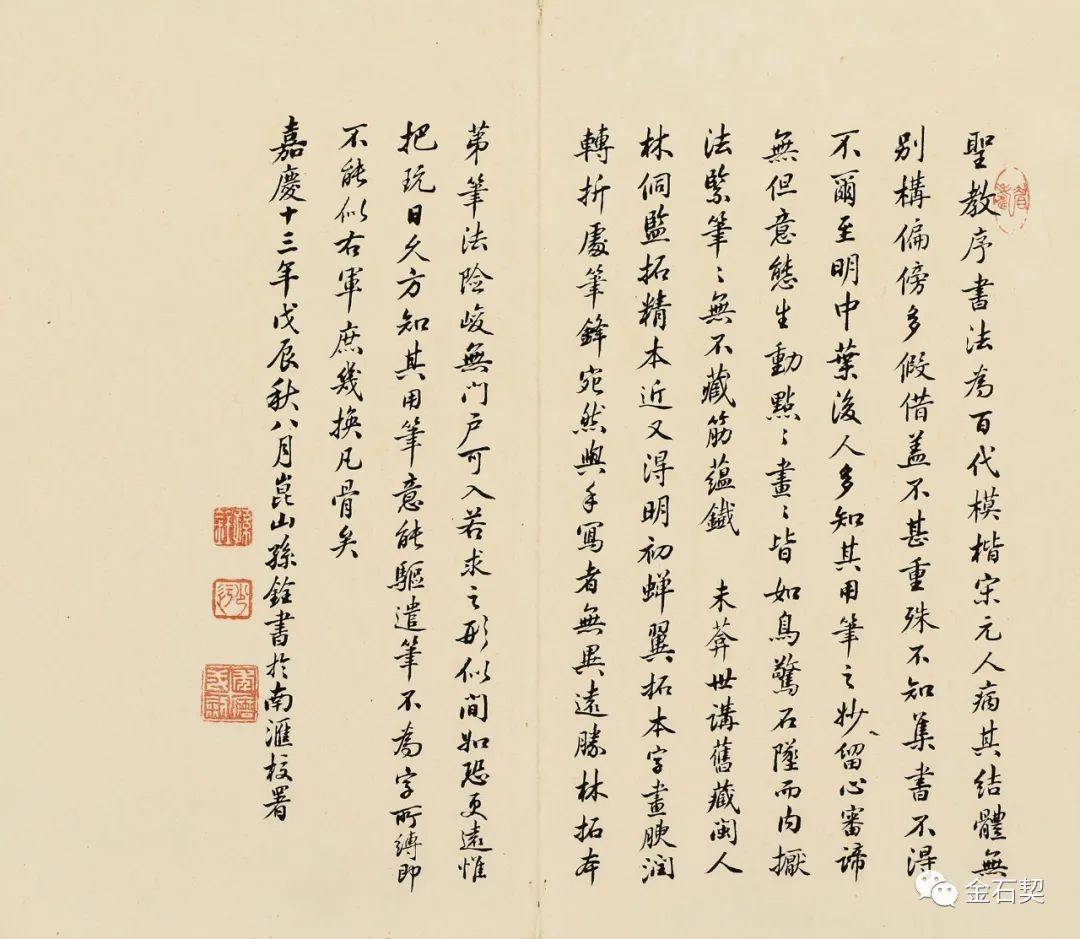 聖教序書法為百代模楷宋元人病其結體無
別構偏傍多假借盖不甚重殊不知集書不得
不爾至明中葉後人多知其用筆之妙留心審諦
無但意態生動點〻畫〻皆如鳥驚石墜而内擫
法緊筆〻無不藏筋蘊鐵 未莽世講舊藏閩人
林侗監拓精本近又得明初蟬翼拓本字畫腴潤
轉折處筆鋒宛然與手寫者無異遠勝林拓本
苐筆法險峻無门户可入若求之形似间如恐更遠惟
把玩日久方知其用筆意能驅遣筆不為字所縛即
不能似右軍庶幾換凡骨矣
嘉慶十三年戊辰秋八月崑山孫銓書於南滙校署
金石契